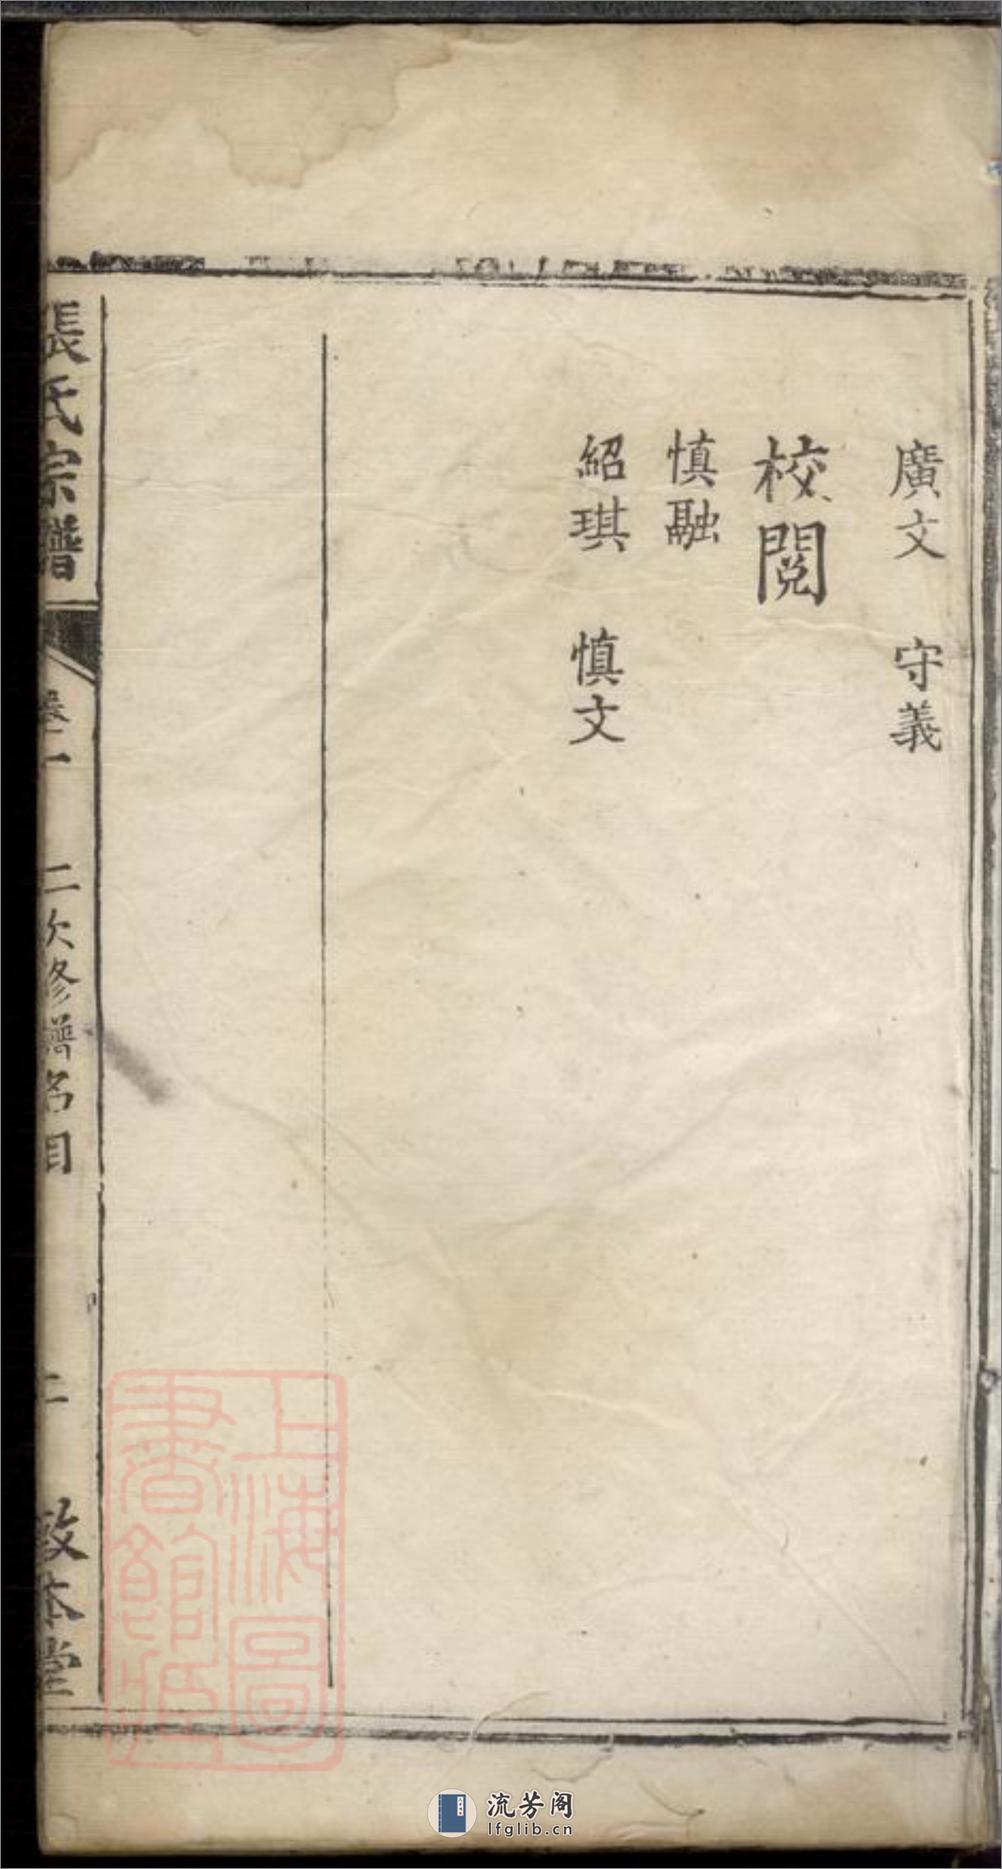 廣文 守義
校閱
慎融
紹琪 慎文
張氏宗譜 卷二 二次修譜名目 二 敦本堂
上海圖書館藏
流芳阁
lfglib.cn